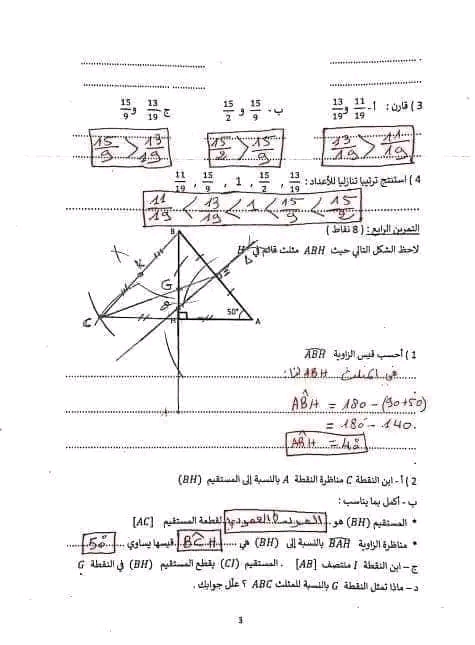 3 ) قارن: أ- 11/19 و 13/19 ب- 15/9 و 15/2 ج 13/19 و 15/9
13/19 > 11/19
15/2 > 15/9
15/9 > 13/19
4 ) استنتج ترتيبا تنازليا للأعداد: 13/19 , 15/2 , 1 , 15/9 , 11/19
11/19 < 13/19 < 1 < 15/9 < 15/2
التمرين الرابع: ( 8 نقاط )
لاحظ الشكل التالي حيث ABH مثلث قائم في H
B
K
G
I
Δ
C
H
50°
A
1 ) أحسب قيس الزاوية ABH
في المثلث ABH لنا:
ABH = 180 - (90+50)
= 180 - 140
ABH = 40
2 ) أ- ابن النقطة C مناظرة النقطة A بالنسبة إلى المستقيم (BH)
ب - أكمل بما يناسب:
* المستقيم (BH) هو الموسط العمودي لقطعة المستقيم [AC]
* مناظرة الزاوية BAH بالنسبة إلى (BH) هي BCH قيسها يساوي 50
ج – ابن النقطة I منتصف [AB] . المستقيم (CI) يقطع المستقيم (BH) في النقطة G
د – ماذا تمثل النقطة G بالنسبة للمثلث ABC ؟ علّل جوابك.
3